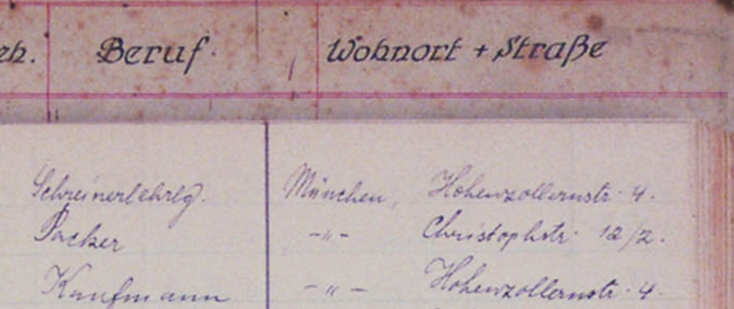 eh. Beruf Wohnort + Straße
Schreinerlehrlg. München, Hohenzollernstr. 4.
Packer -„- Christophstr. 12/2.
Kaufmann -„- Hohenzollernstr. 4.